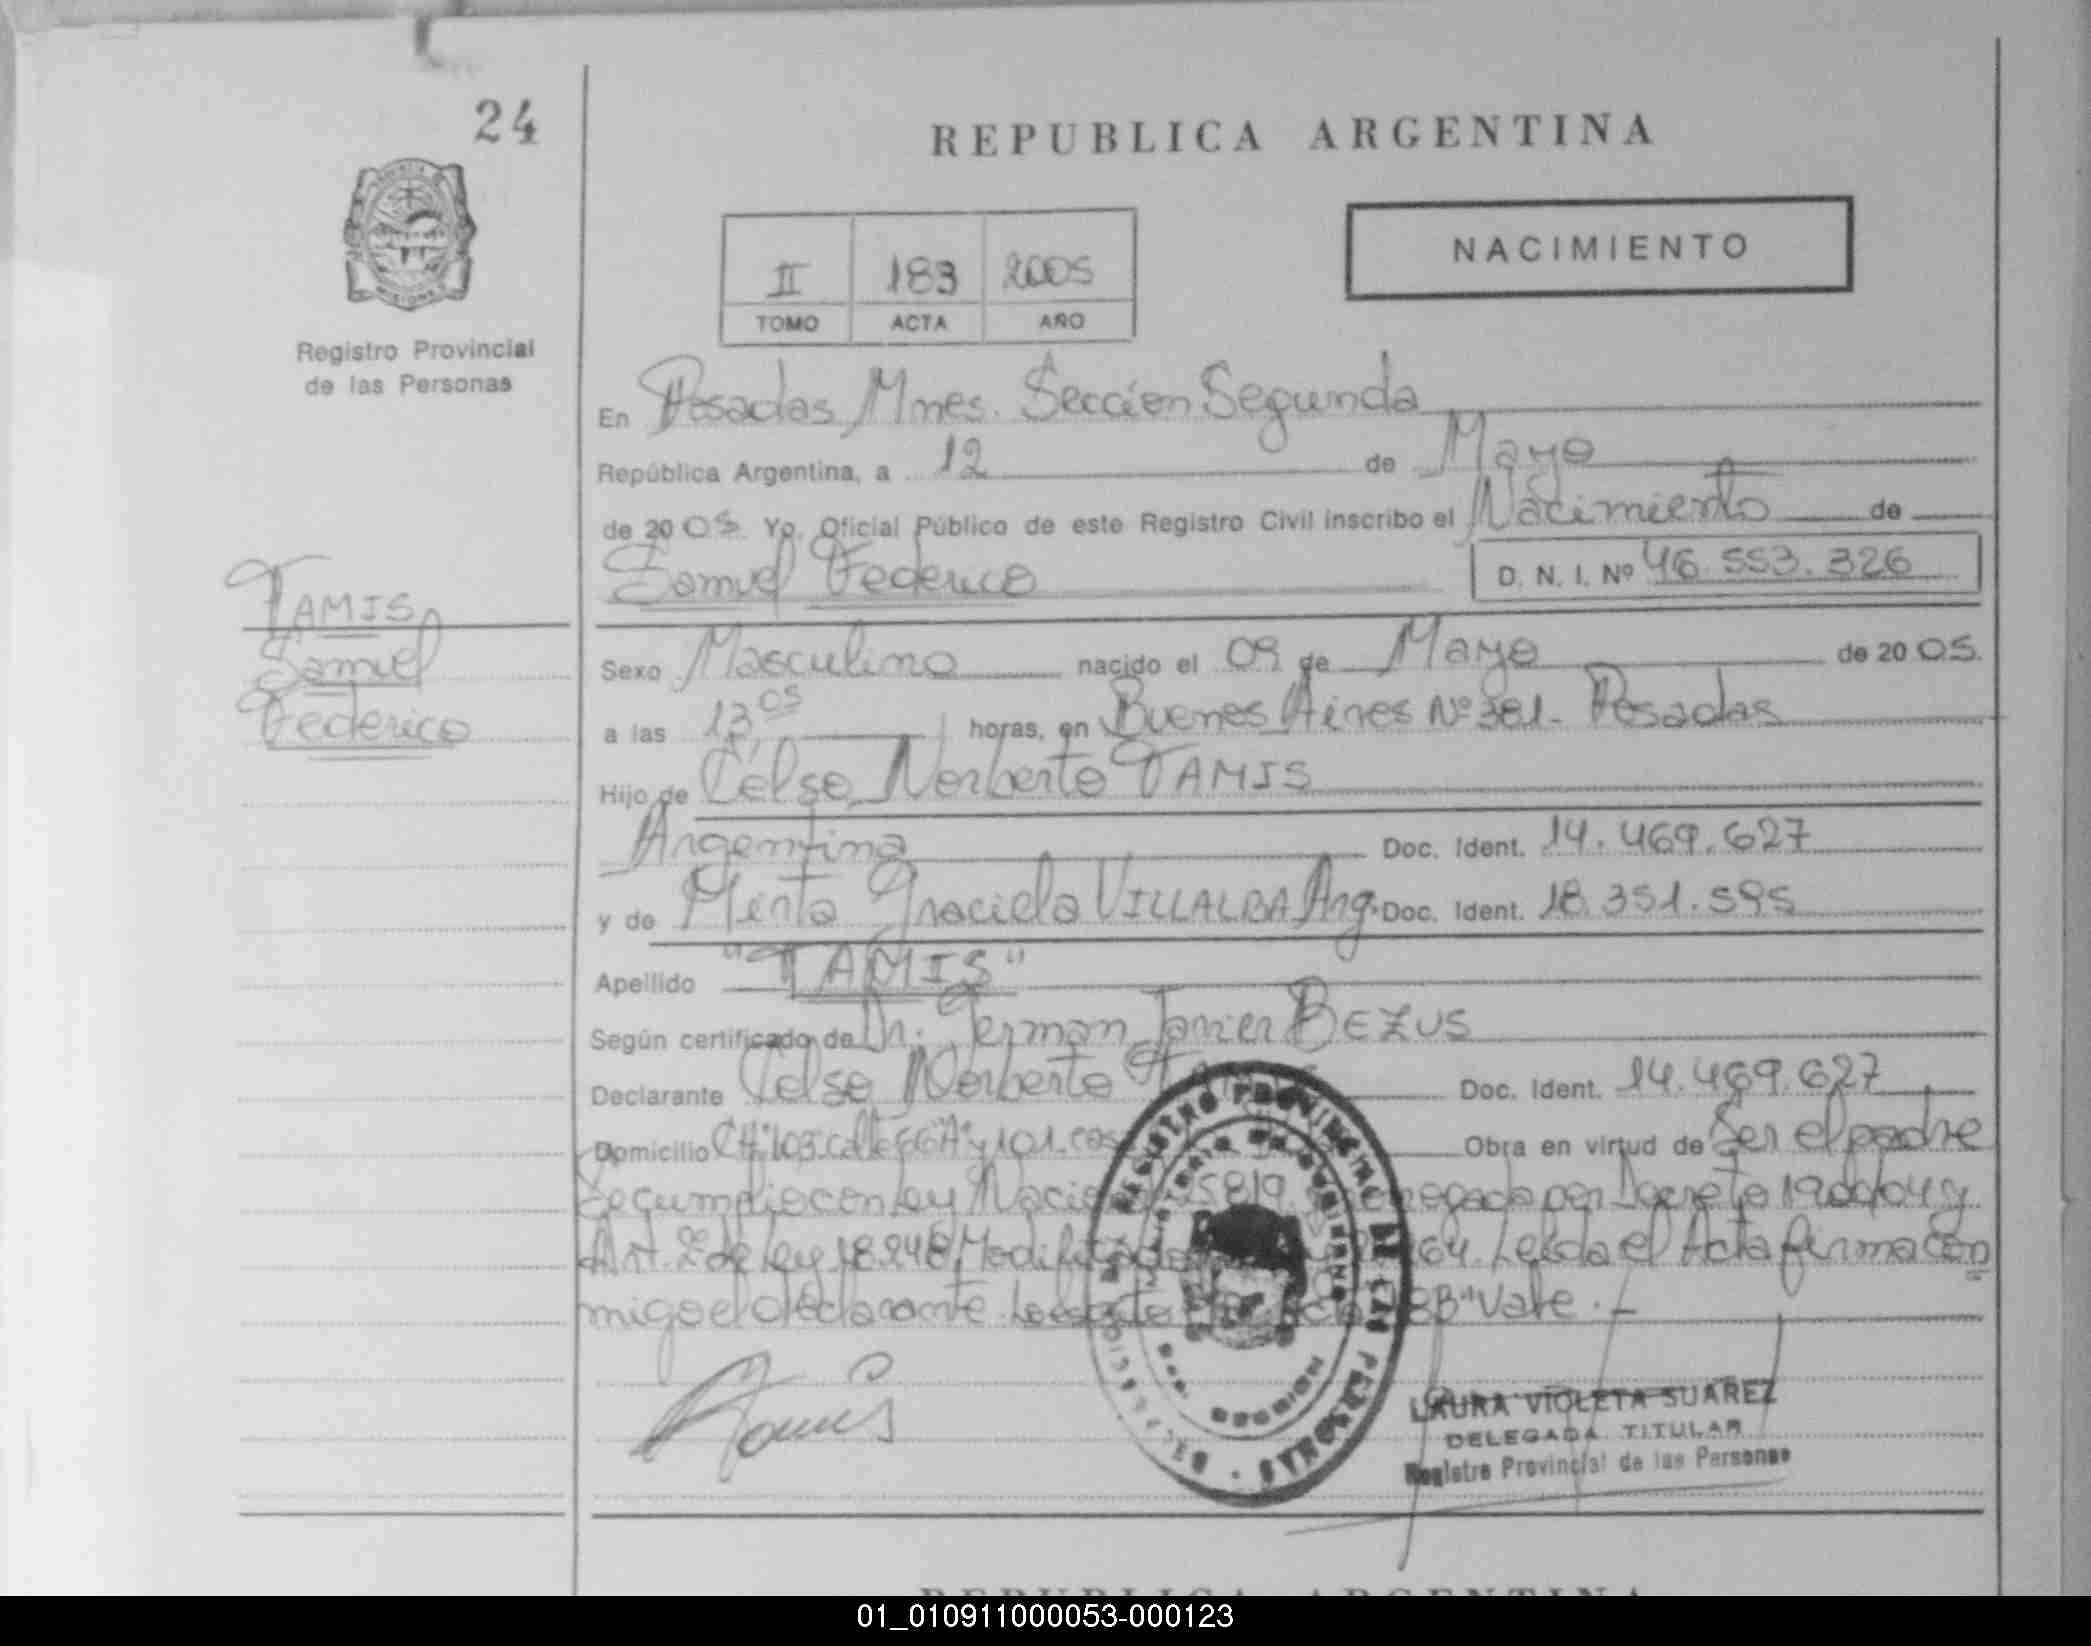 24
REPUBLICA ARGENTINA
II 183 2005
TOMO ACTA AÑO
NACIMIENTO
MISIONES
Registro Provincial
de las Personas
En Posadas, Mnes. Sección Segunda
República Argentina, a 12 de Mayo
de 2005. Yo, Oficial Público de este Registro Civil inscribo el Nacimiento de
Samuel Federico D. N. I. Nº 46.553.326
TAMIS
Samuel
Federico
Sexo Masculino nacido el 09 de Mayo de 2005.
a las 13 05 horas, en Buenos Aires Nº 381- Posadas
Hijo de Celso Norberto TAMIS
Argentina Doc. Ident. 14.469.627
y de Mirta Graciela VILLALBA Arg. Doc. Ident. 18.351.595
Apellido "TAMIS"
Según certificado de Dr. German Javier BEZUS
Declarante Celso Norberto Doc. Ident. 14.469.627
Domicilio CH. 103- calle 66"A" y 101- Obra en virtud de Ser el padre
Se cumplio con Ley por Decreto y
Art. 2º de Ley 18.248 Leida el Acta firma con
migo el declarante. Vale.-
Tamis
REGISTRO PROVINCIAL DE LAS PERSONAS
LAURA VIOLETA SUAREZ
DELEGADA TITULAR
Registro Provincial de las Personas
REPUBLICA ARGENTINA
01_010911000053-000123